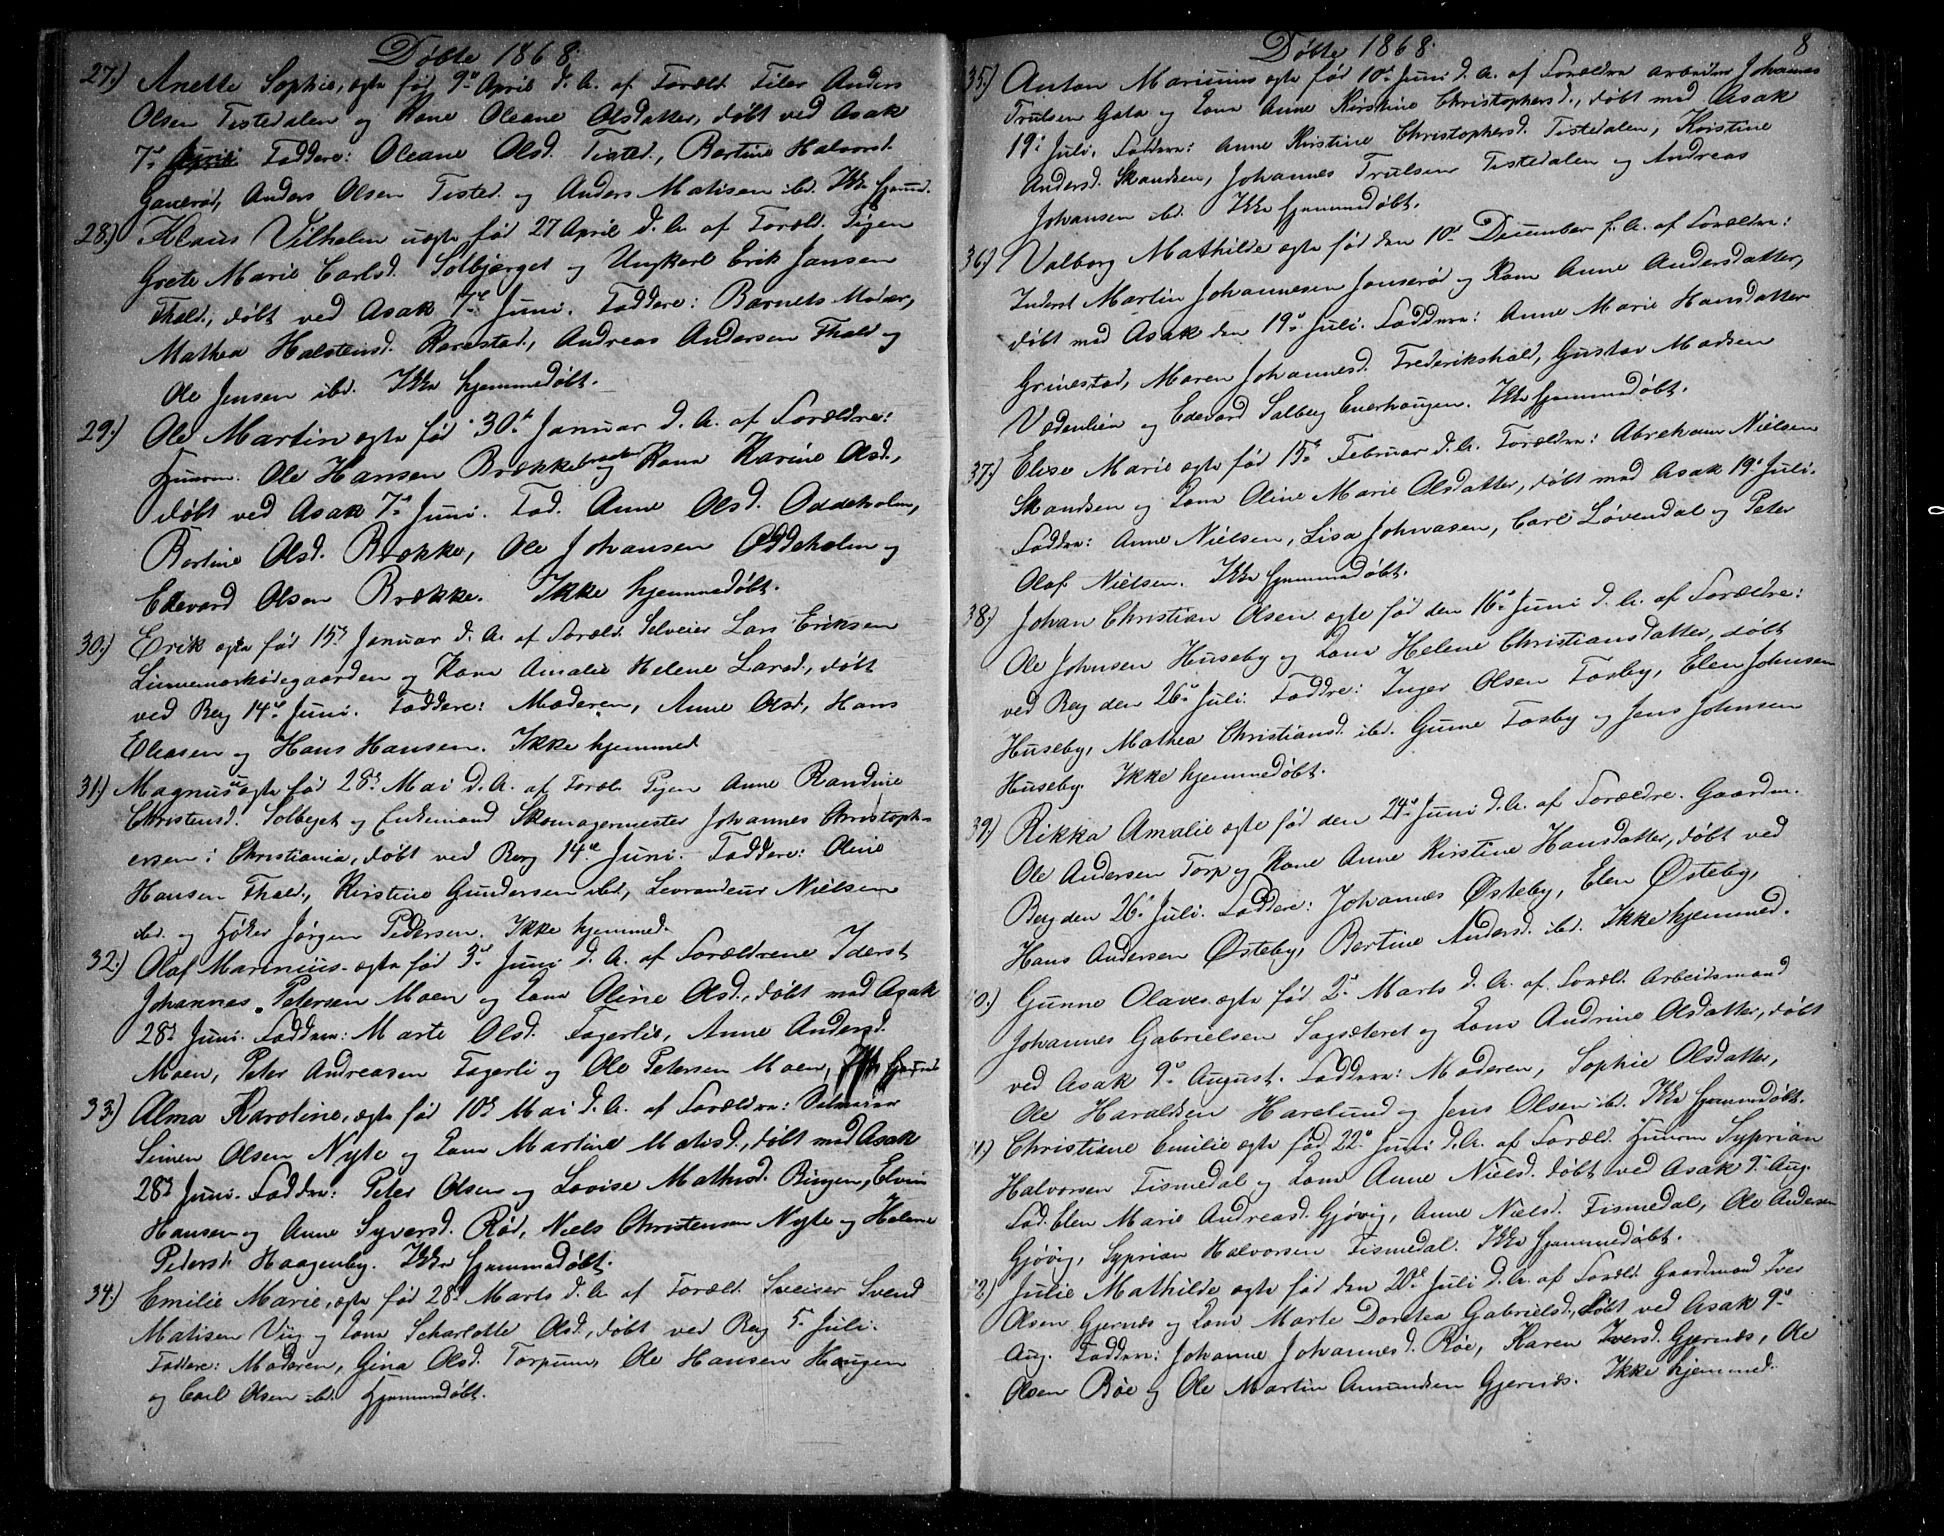 Døbte 1868.
27.) Anette Sophie, ægte født 9de April d. A. af Foræld. Filer Anders
Olsen Tistedalen og Kone Oleane Olsdatter, døbt ved Asak
7de Faddere: Oleane Olsd. Tisted., Bertine Halvorsd.
Ganerød, Anders Olsen Tisted. og Anders Matisen ibd. Ikke hjemmd.
28.) Klaus Vilhelm uægte født 27 April d. A. af Foræld. Pigen
Grete Marie Carlsd. Solbjærget og Ungkarl Erik Jansen
Fhald., døbt ved Asak 7de Juni. Faddere: Barnets Moder,
Mathea Halstensd. Karrestad, Andreas Andersen Fhald og
Ole Jensen ibd. Ikke hjemmedøbt.
29.) Ole Martin ægte født 30te Januar d. A. af Forældre:
Huusm. Ole Hansen Brække og Kone Karine Olsd.,
døbt ved Asak 7de Juni. Fad. Anne Olsd. Oddeholm,
Bertine Olsd. Brække, Ole Johansen Oddeholm og
Edevard Olsen Brække. Ikke hjemmedøbt.
30.) Erik ægte født 15de Januar d. A. af Foræld. Selveier Lars Eriksen
Linnemarkødegaarden og Kone Amalie Helene Larsd., døbt
ved Berg 14de Juni. Faddere: Moderen, Anne Olsd., Hans
Eleasen og Hans Hansen. Ikke hjemmed
31.) Magnus uægte født 28de Mai d. A. af Foræl. Pigen Anne Randine
Christensd. Solbjget og Enkemand Skomagermester Johannes Christoph-
ersen i Christiania, døbt ved Berg 14de Juni. Faddere: Oline
Hansen Fhald, Kirstine Gundersen ibd, Levrandeur Nielsen
ibd. og Høker Jørgen Pedersen. Ikke hjemmed.
32.) Olaf Marinius ægte født 3de Juni d. A. af Forældrene Inderst
Johannes Petersen Moen og Kone Oline Olsd., døbt ved Asak
28de Juni. Faddere: Marte Olsd. Fagerlie, Anne Andersd.
Moen, Peter Andreasen Fagerli og Ole Petersen Moen, Ikke hjemmd
33.) Alma Karoline, ægte født 10de Mai d. A. af Forældre: Selveier
Simen Olsen Nyte og Kone Martine Matisd., døbt ved Asak
28de Juni. Faddre: Peter Olsen og Lovise Mathisd. Ringen, Elvin
Hansen og Anne Syversd. Rød, Niels Christensen Nyte og Helene
Pedersd. Haagenby. Ikke hjemmedøbt.
34.) Emilie Marie, ægte født 28de Marts d. A. af Foræld. Sveiser Svend
Matisen Viig og Kone Scharlotte Olsd., døbt ved Berg 5. Juli.
Faddere: Moderen, Gina Olsd. Torpum, Ole Hansen Haugen
og Carl Olsen ibd. Hjemmedøbt.
Døbte 1868. 8
35) Anton Marinius ægte født 10de Juni d. A. af Forældre arbeider Johannes
Trulsen Gata og Kone Anne Kirstine Christophersd., døbt ved Asak
19de Juli. Faddere: Anne Kirstine Christophersd. Tistedalen, Kristine
Andersd. Skandsen, Johannes Trulsen Tistedalen og Andreas
Johansen ibd. Ikke hjemmedøbt.
36) Valborg Mathilde ægte født den 10de December f. A. af Forældre:
Inderst Martin Johannesen Jonserød og Kone Anne Andersdatter,
døbt ved Asak den 19de Juli. Faddere: Anne Marie Hansdatter
Grimestad, Maren Johannesd. Frederikshald, Gustav Madsen
Vedenlien og Edevard Solberg Enerhaugen. Ikke hjemmedøbt.
37.) Elise Marie ægte født 15de Februar d. A. Forældre: Abraham Nielsen
Skandsen og Kone Oline Marie Olsdatter, døbt ved Asak 19de Juli.
Faddere: Anne Nielsen, Lisa Johnasen, Carl Løvendal og Peter
Olaf Nielsen. Ikke hjemmedøbt.
38.) Johan Christian Olsen ægte født den 16de Juni d. A. af Forældre:
Ole Johnsen Huseby og Kone Helene Christiansdatter, døbt
ved Berg den 26de Juli. Faddre: Inger Olsen Fosby, Elen Johnsen
Huseby, Mathea Christiansd. ibd. Gune Fosby og Jens Johnsen
Huseby. Ikke hjemmedøbt.
39) Rikka Amalie ægte født den 24de Juni d. A. af Forældre. Gaardm.
Ole Andersen Torp og Kone Anne Kirstine Hansdatter, døbt ved
Berg den 26de Juli. Faddere: Johannes Østeby, Elen Østeby,
Hans Andersen Østeby, Bertine Andersd. ibd. Ikke hjemmed.
0.) Gunne Olaves ægte født 2de Marts d. A. af Foræld. Arbeidsmand
Johannes Gabrielsen Sagsæteret og Kone Andrine Olsdatter, døbt
ved Asak 9de August. Faddere: Moderen, Sophie Olsdatter,
Ole Haraldsen Harelund og Jens Olsen ibd. Ikke hjemmedøbt.
1) Christiane Emilie ægte født 22de Juni d. A. af Foræld. Huusm Syprian
Halvorsen Fismedal og Kone Anne Nielsd. døbt ved Asak 9de Aug.
Fad. Elen Marie Andreasd. Gjøvig, Anne Nielsd. Fismedal, Ole Andersen
Gjøvig, Syprian Halvorsen Fismedal. Ikke hjemmedøbt.
2) Julie Mathilde ægte født den 20de Juli d. A. af Foræld. Gaardmand Iver
Olsen Gjernæs og Kone Marte Dorotea Gabrielsd., døbt ved Asak 9de
Aug. Faddere: Johanne Johannesd. Røe, Karen Iversd. Gjernæs, Ole
Olsen Bøe og Ole Martin Amundsen Gjernæs. Ikke hjemmed.